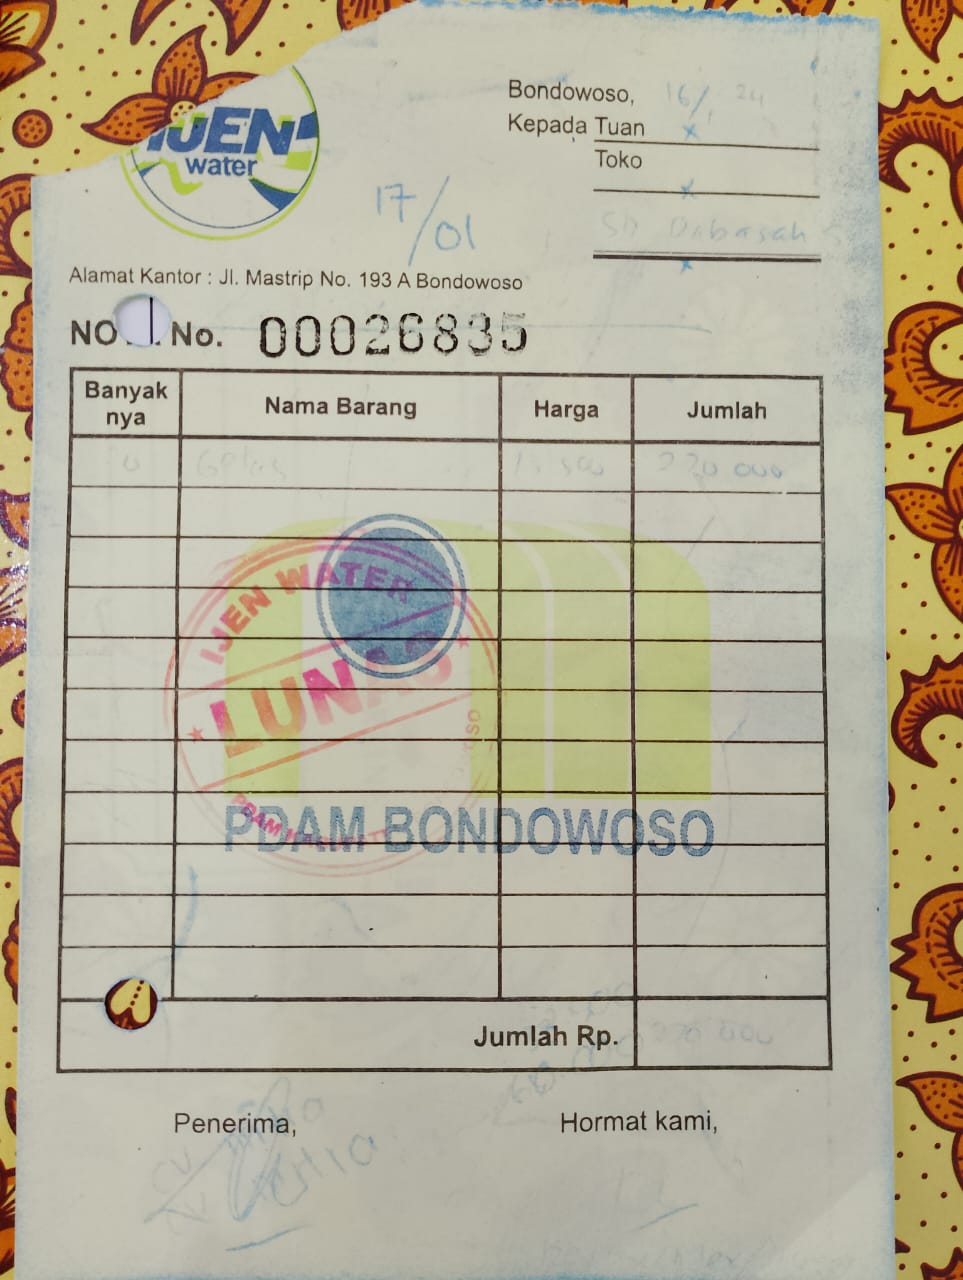 IJEN
water
Bondowoso, 16/1 24
Kepada Tuan
Toko
17/01
SD Dabasah 5
Alamat Kantor : Jl. Mastrip No. 193 A Bondowoso
NO No. 00026835
Banyak nya Nama Barang Harga Jumlah
Gelas 220 000
IJEN WATER
LUNAS
PDAM BONDOWOSO
Jumlah Rp. 220 000
Penerima, Hormat kami,